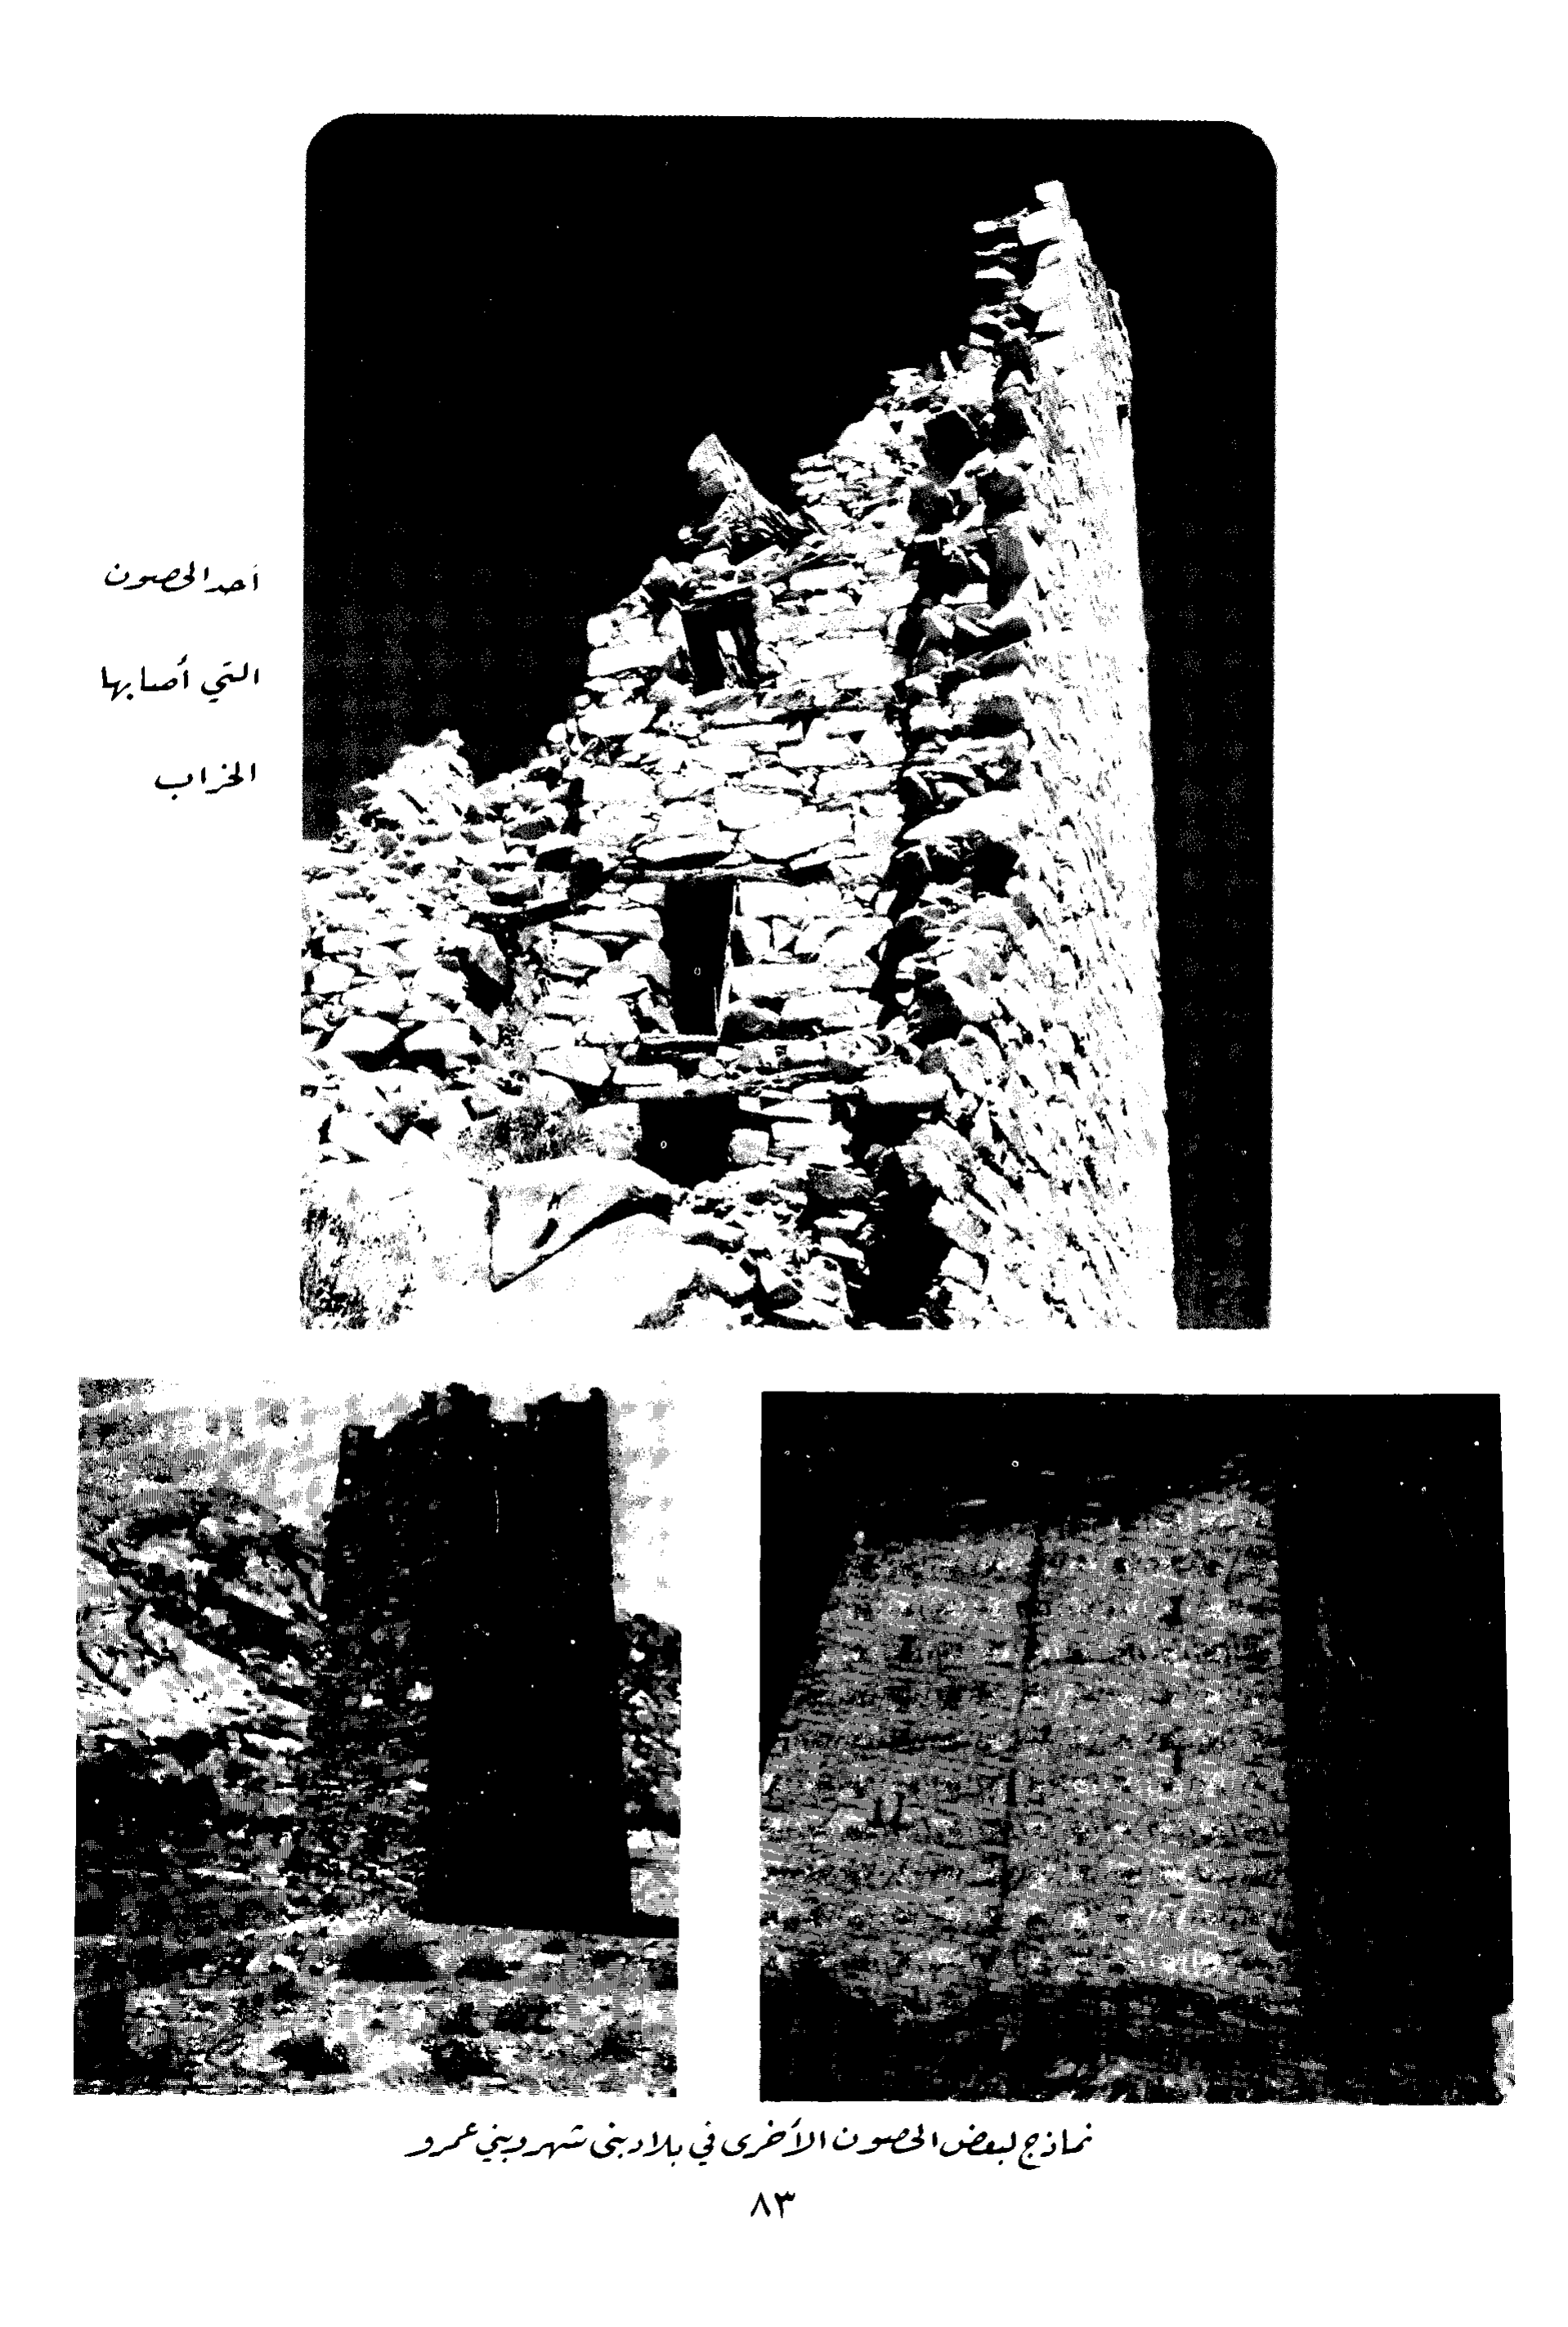 أحد الحصون
التي أصابها
الخراب
نماذج لبعض الحصون الأخرى في بلاد بني شهر وبني عمرو
٨٣